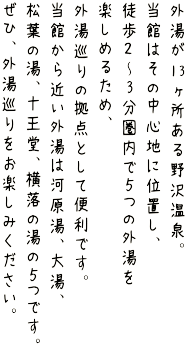 外湯が13ヶ所ある野沢温泉。
当館はその中心地に位置し、
徒歩2～3分圏内で5つの外湯を
楽しめるため、
外湯巡りの拠点として便利です。
当館から近い外湯は河原湯、大湯、
松葉の湯、十王堂、横落の湯の5つです。
ぜひ、外湯巡りをお楽しみください。